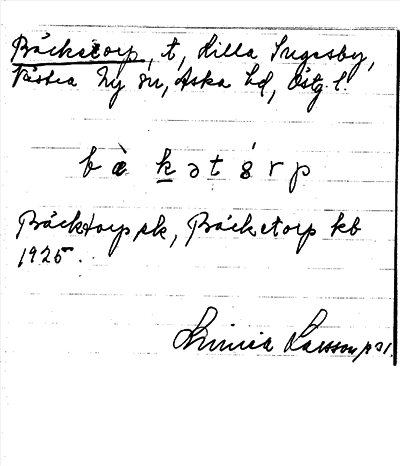 Bäcketorp, t, Lilla Ingesby,
Västra Ny sn, Aska hd, Östg. l.
b ὲ k ə t ó r p
Bäcktorp sk, Bäcketorp kb
1925.
Linnea Larsson